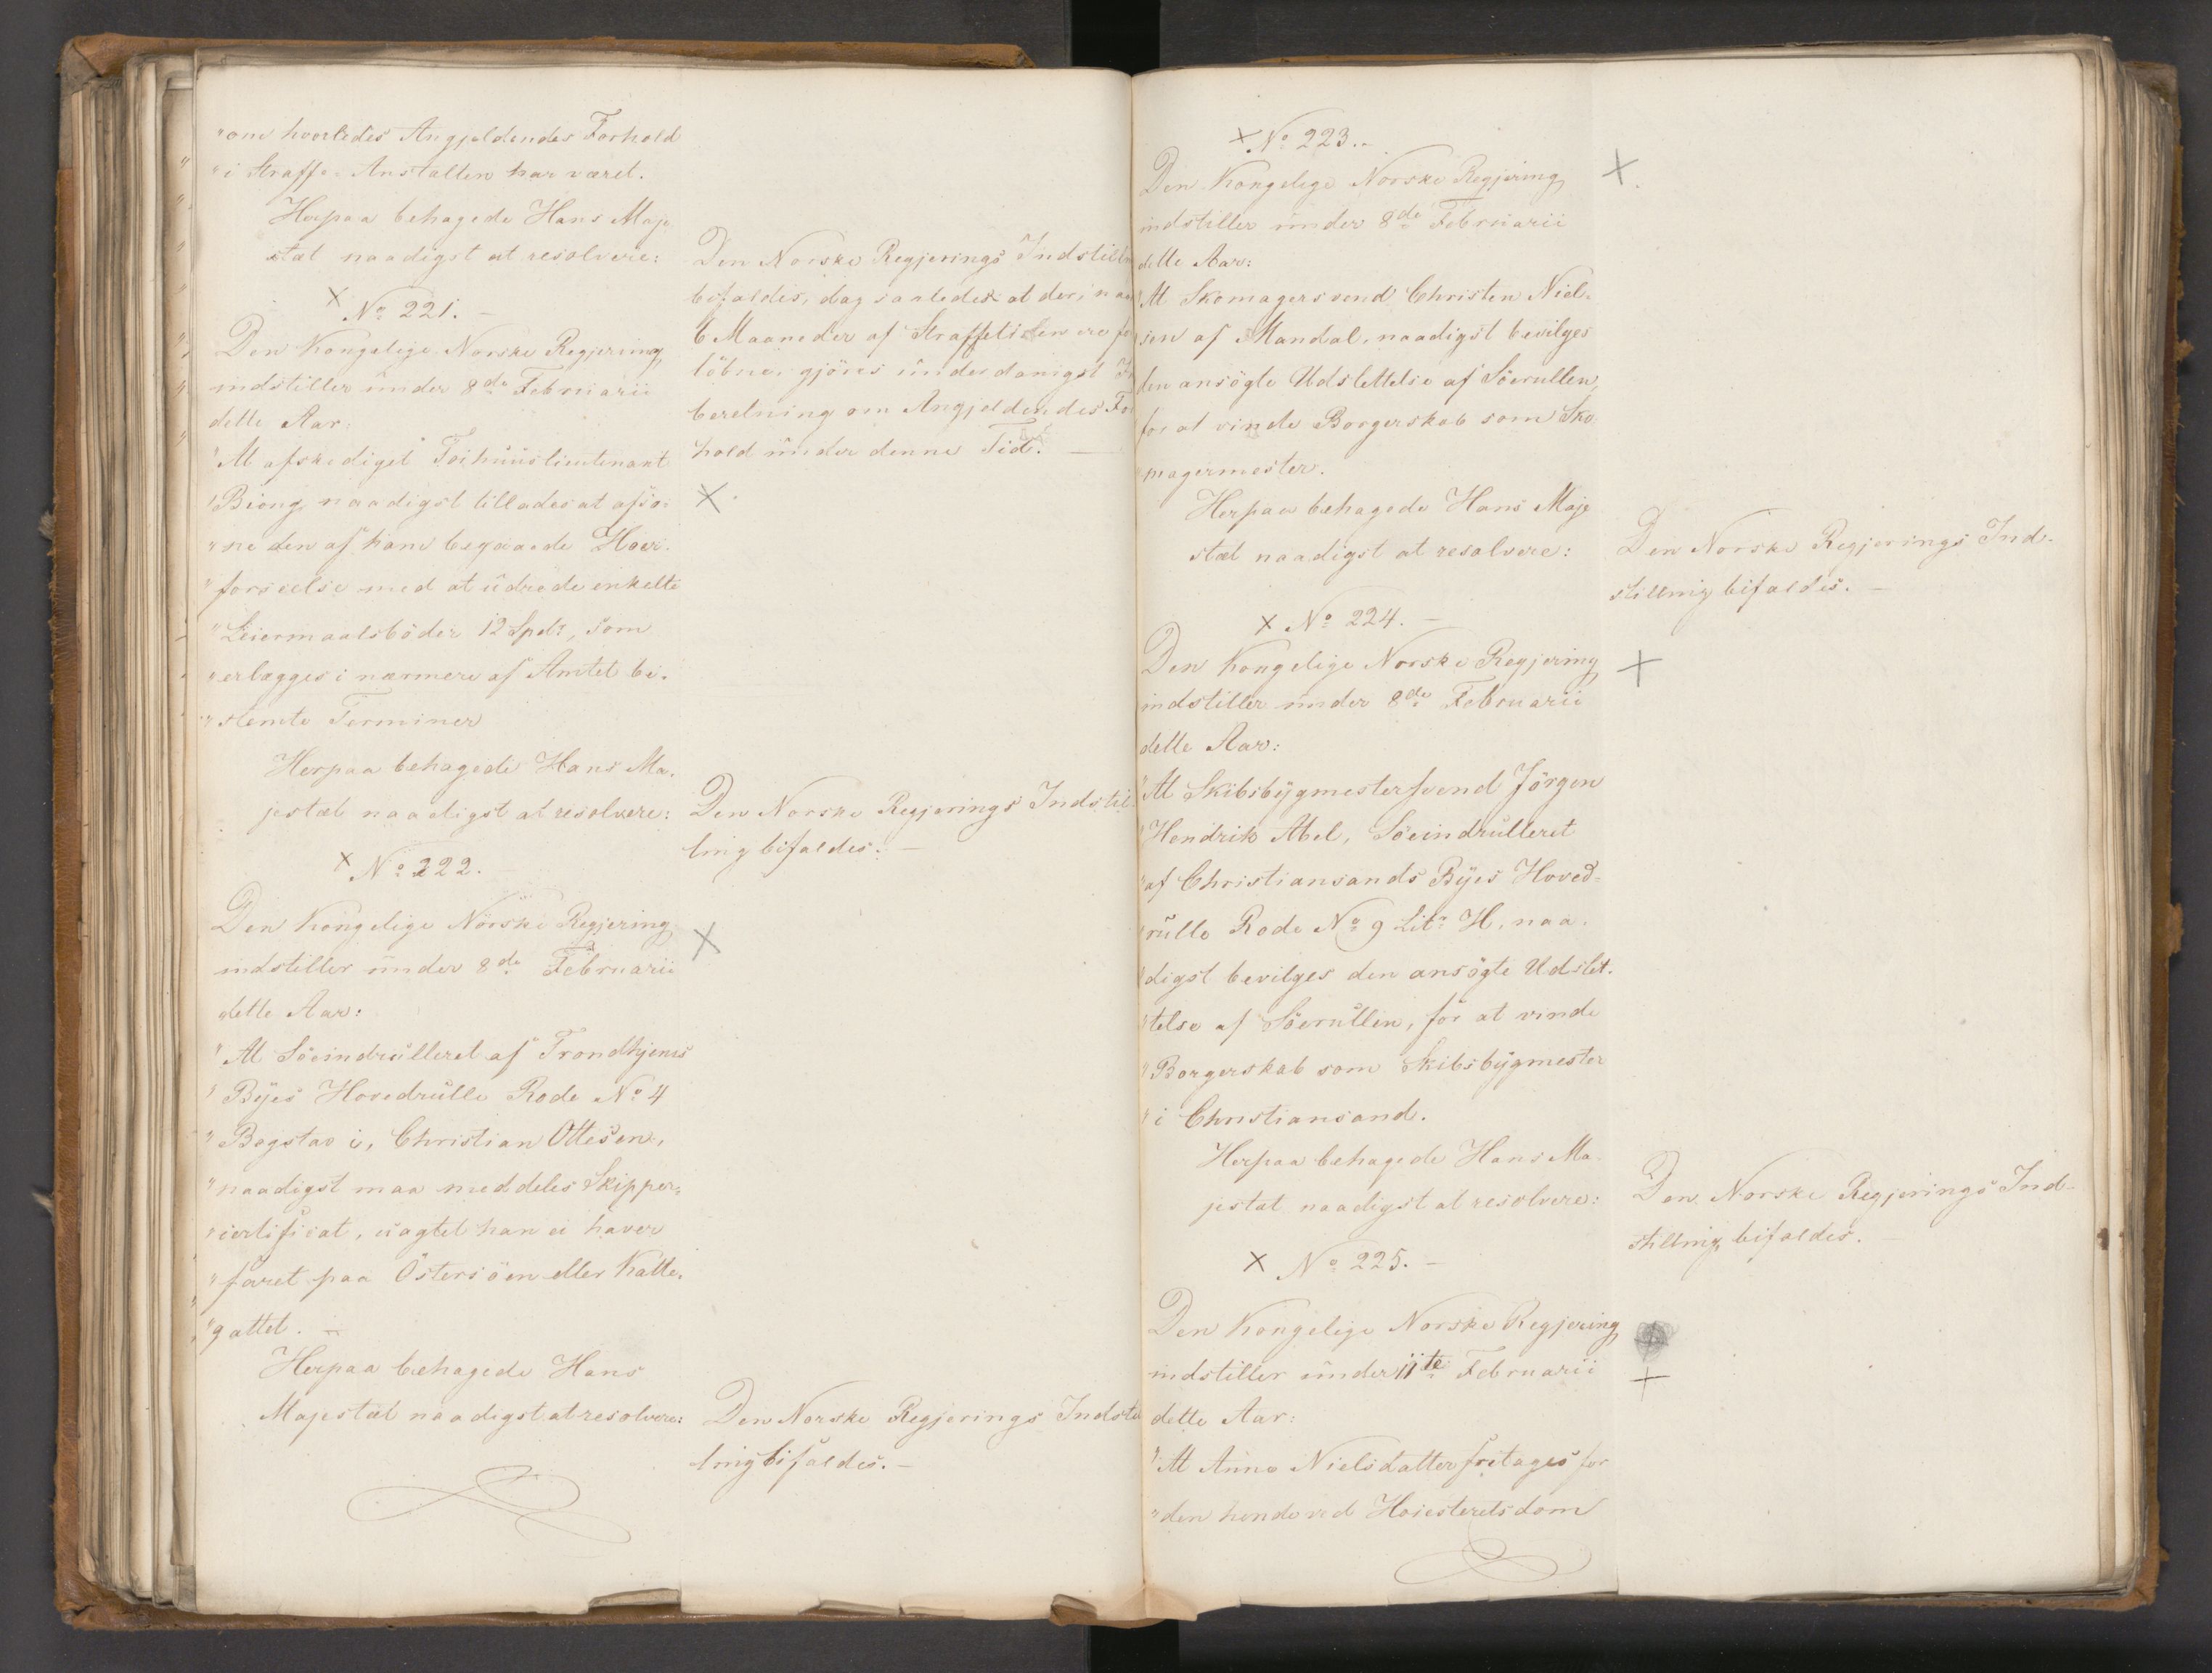 "om hvorledes Angjeldendes Forhold
"i Straffe-Anstalten har været.
Herpaa behagede Hans Maje
stæt naadigst at resolvere:
Den Norske Regjerings Indstilln
bifaldes, dog saaledes at der, naar
6 Maaneder af Straffetiden ere for
löbne, gjöres underdanigst
beretning om Angjeldendes For
hold under denne Tid. —
× No 221. —
Den Kongelige Norske Regjering
indstiller under 8de Februarii
dette Aar:
"At afskediget Töihuuslieutenant
"Biong naadigst tillades at afso-
"ne den af ham begaaede Hoer-
"forseelse med at udrede enkelte
"Leiermaalsböder 12 Spdr, som
"erlægges i nærmere af Amtet be-
"stemte Terminer
×
Herpaa behagede Hans Ma-
jestæt naadigst at resolvere:
Den Norske Regjerings Indstil
ling bifaldes. —
× No 222.
Den Kongelige Norske Regjering
indstiller under 8de Februarii
dette Aar:
"At Söeindrulleret af Trondhjems
"Byes Hovedrulle Rode No 4
"Bogstav i, Christian Ottesen,
"naadigst maa meddeles Skipper-
"certificat, uagtet han ei haver
"faret paa Östersöen eller Katte-
"gattet. —
×
Herpaa behagede Hans
Majestæt naadigst at resolvere:
Den Norske Regjerings Indstil
ling bifaldes. —
× No 223. —
Den Kongelige Norske Regjering
indstiller under 8de Februarii
dette Aar:
"At Skomagersvend Christen Niel-
sen af Mandal, naadigst bevilges
den ansögte Udslettelse af Söerullen,
for at vinde Borgerskab som Sko
magermester.
×
Herpaa behagede Hans Maje
stæt naadigst at resolvere:
Den Norske Regjerings Ind-
stilling bifaldes. —
× No 224. —
Den Kongelige Norske Regjering
indstiller under 8de Februarii
dette Aar:
"At Skibsbygmestersvend Jörgen
"Hendrik Abel, Söeindrulleret
"af Christiansands Byes Hoved-
"rulle Rode No 9 Litr H, naa-
"digst bevilges den ansögte Udslet-
"telse af Söerullen, for at vinde
"Borgerskab som Skibsbygmester
"i Christiansand.
×
Herpaa behagede Hans Ma-
jestæt naadigst at resolvere:
Den Norske Regjerings Ind-
stilling bifaldes. —
× No 225. —
Den Kongelige Norske Regjering
indstiller under 11te Februarii
dette Aar:
"At Anne Nielsdatter fritages for
"den hende ved Höiesteretsdom
×